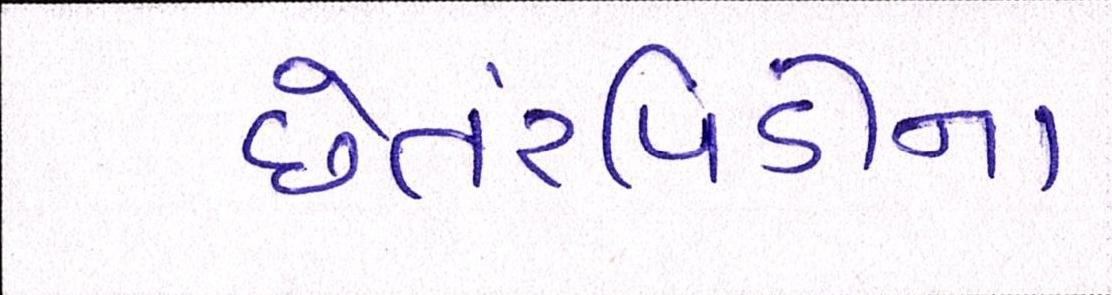 છેતરંપિંડીના